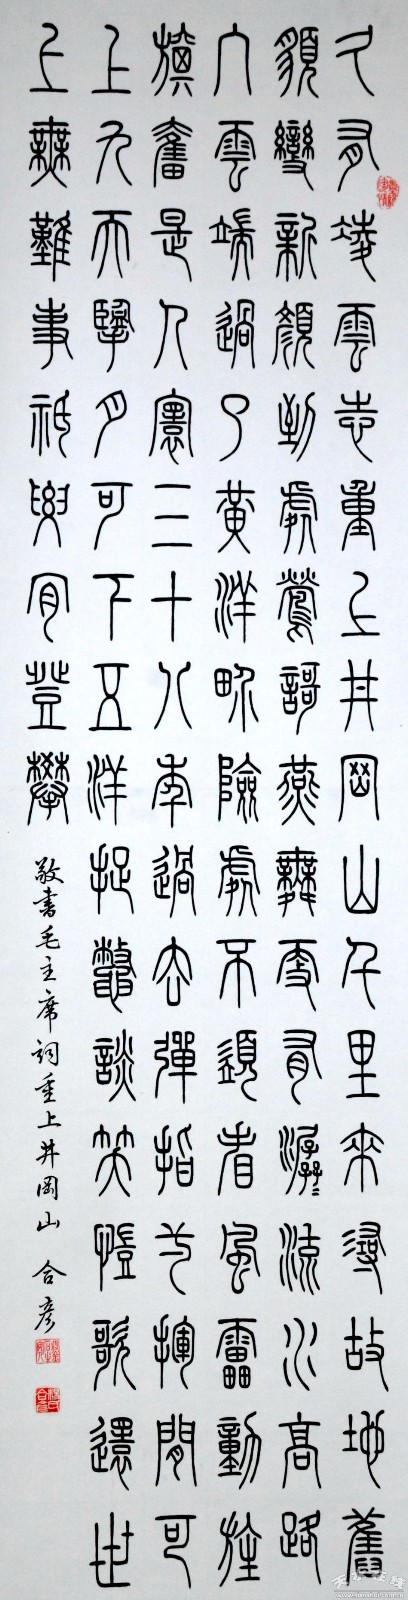 久有凌雲志重上井岡山千里來尋故地舊
貌變新顏到處鶯謌燕舞更有潺〻流水高路
入雲端過了黃洋畍險處不須看風雷動旌
旗奮是人寰三十八年過去彈指一揮間可
上九天攬月可下五洋捉鱉談笑凱歌還世
上無難事祇要肯登攀
敬書毛主席詞重上井岡山 合彥